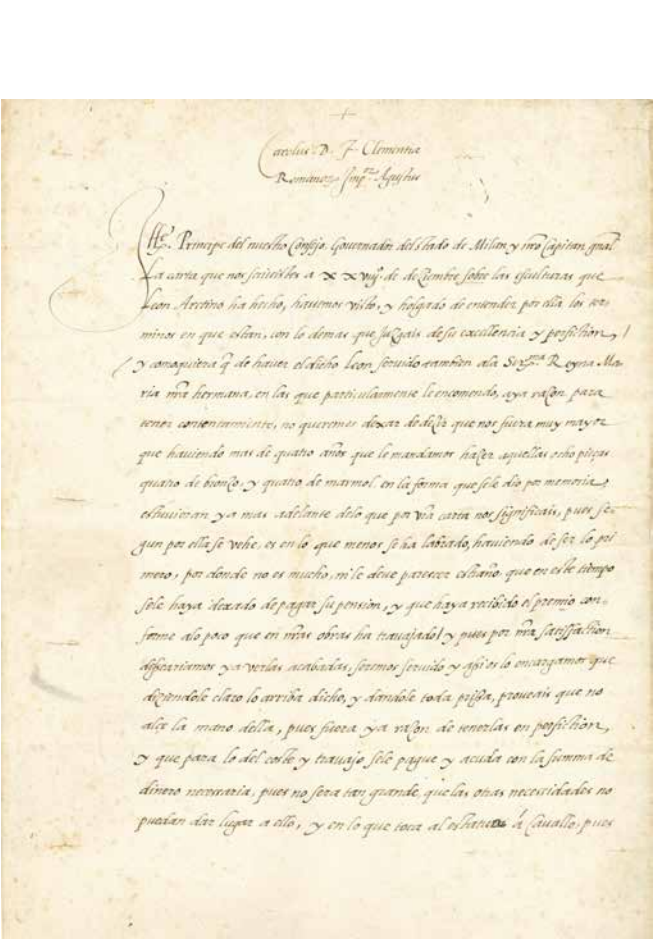 +
Carolus D. F. Clementia
Romanor. Imp.or Agustus
Ille. Principe del nuestro Consejo. Governador del Stado de Milan y nro Capitan gnal
La carta que nos scriuistes a xxviij. de deziembre sobre las esculturas que
Leon Aretino ha hecho, hauemos visto, y holgado de entender por ella los ter
minos en que estan, con lo demas que Juzgais de su excellencia y perfiction, /
/ y comoquiera q̃ de hauer el dicho Leon seruido tambien ala Ser.ma Reyna Ma-
ria nra hermana, en las que particularmente le encomendo, aya razon para
tener contentamiento, no queremos dexar de dezir que nos fuera muy mayor
que hauiendo mas de quatro años que le mandamos hazer aquellas ocho pieças
quatro de bronzo, y quatro de marmol en la forma que se le dio por memoria,
estuuieran ya mas adelante delo que por vra carta nos significais, pues se-
gun por ella se vehe, es en lo que menos se ha labrado, hauiendo de ser lo pri
mero, por donde no es mucho, ni le deue parescer estraño, que en este tiempo
sele haya dexado de pagar su pension, y que haya recibido el premio con-
forme alo poco que en nras obras ha trauajado / y pues por nra satisffaction
dessearriamos ya verlas acabadas, seremos seruido y assi os lo encargamos que
diziendole claro lo arriba dicho, y dandole toda prissa, proueais que no
alçe la mano della, pues fuera ya razon de tenerlas en perfiction,
y que para lo del coste y trauajo sele pague y acuda con la summa de
dinero necessaria, pues no sera tan grande que las otras necessidades no
puedan dar lugar a ello, y en lo que toca al estatua á Cauallo, pues